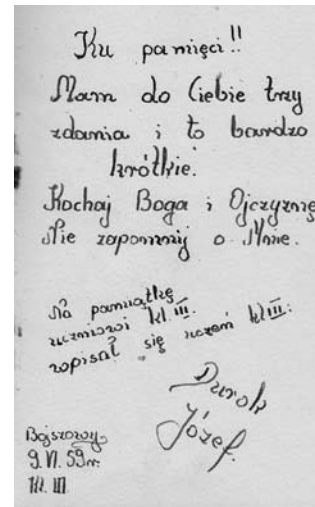 Ku pamięci!!
Mam do Ciebie trzy
zdania i to bardzo
krótkie.
Kochaj Boga i Ojczyznę
Nie zapomnij o Mnie.
Na pamiątkę
uczniowi kl. III.
wpisał się uczeń kl III.
Durok
Józef.
Bojszowy
9.VI.59r.
kl. III